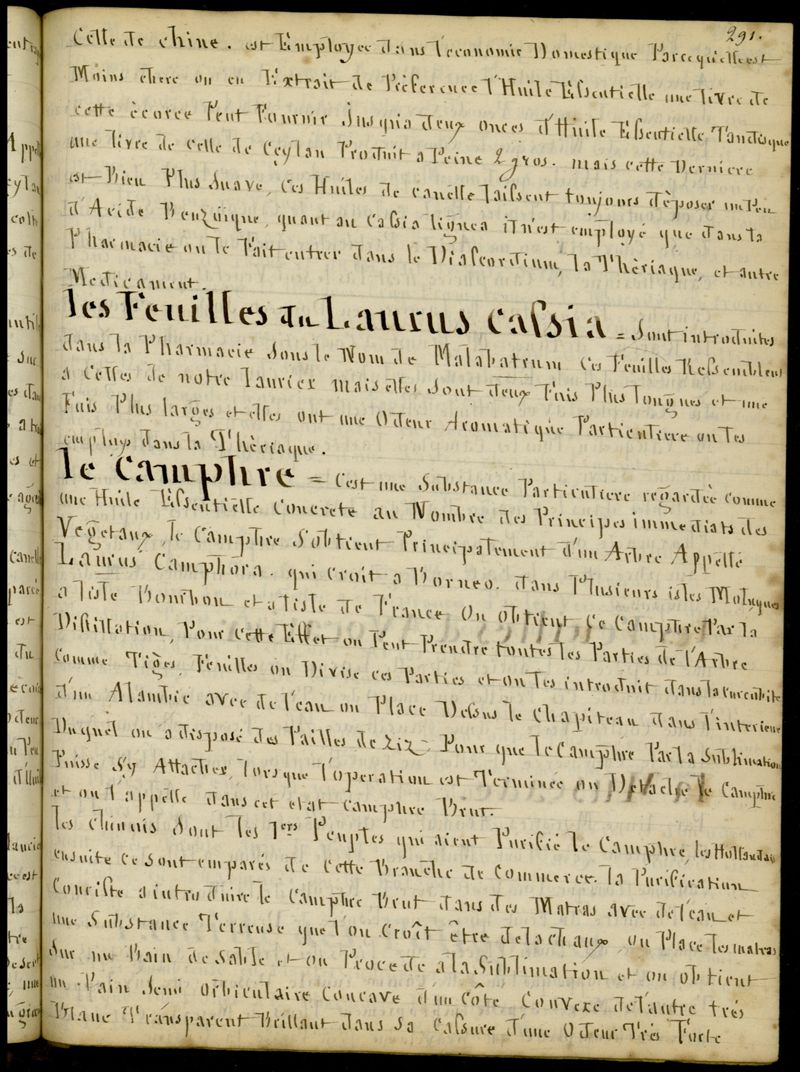 291.
Celle de chine. est Employee dans l'economie Domestique Parcequ'elle est
Moins chere on en Extrait de Preference l'Huile Essentielle une livre de
cette écorce Peut Fournir Jusqu'a deux onces d'Huile Essentielle Tandisque
une livre de celle de Ceylan Produit a Peine 2 gros. mais cette Derniere
est Bien Plus Suave, Ces Huiles de canelle laissent toujours dèposer un Peu
d'Acide Benzoique, quant au Cassia lignea il n'est employé que dans la
Pharmacie on le Fait entrer dans le Diascordium, la Thèriaque, et autre
Medicament.
les Feuilles du Laurus Cassia = Sont introduites
dans la Pharmacie Sous le Nom de Malabatrum Ces Feuilles Ressemblent
a Celles de notre laurier mais elles Sont deux Fois Plus longues et une
Fois Plus larges et elles ont une Odeur Aromatique Particuliere on les
employe dans la Thèriaque.
le Camphre = C'est une Substance Particuliere regardée comme
une Huile Essentielle Concrete au Nombre des Principes immediats des
Vegetaux, le Camphre S'obtient Principalement d'un Arbre Appellé
Laurus Camphora. qui Croit a Borneo. dans Plusieurs isles Moluques
a l'isle Bourbon et a l'isle de France On obtient Ce Camphre Par la
Distillation, Pour cette Effet on Peut Prendre toutes les Parties de l'Arbre
comme Tiges, Feuilles on Divise ces Parties et on les introduit dans la Cucurbite
d'un Alambic avec de l'eau on Place Dessus le Chapiteau dans l'interieur
Duquel on a disposé des Pailles de Riz Pour que le Camphre Par la Sublimation
Puisse Sy Attacher, lors que l'operation est Terminée on Detache le Camphre
et on l'appelle dans cet etat Camphre Brut.
les chinois Sont les 1ers Peuples qui aient Purifié le Camphre, les Hollandais
ensuite ce sont emparés de Cette Branche de Commerce. la Purification
Consiste a introduire le Camphre Brut dans des Matras avec de l'eau et
une Substance Terreuse que l'on Croît être de la chaux, on Place les matras
Sur un Bain de Sable et on Procede a la Sublimation et on obtient
un Pain Semi Orbiculaire Concave d'un côté Convexe de l'autre très
Blanc Transparent Brillant dans Sa Cassure d'une Odeur Très Forte